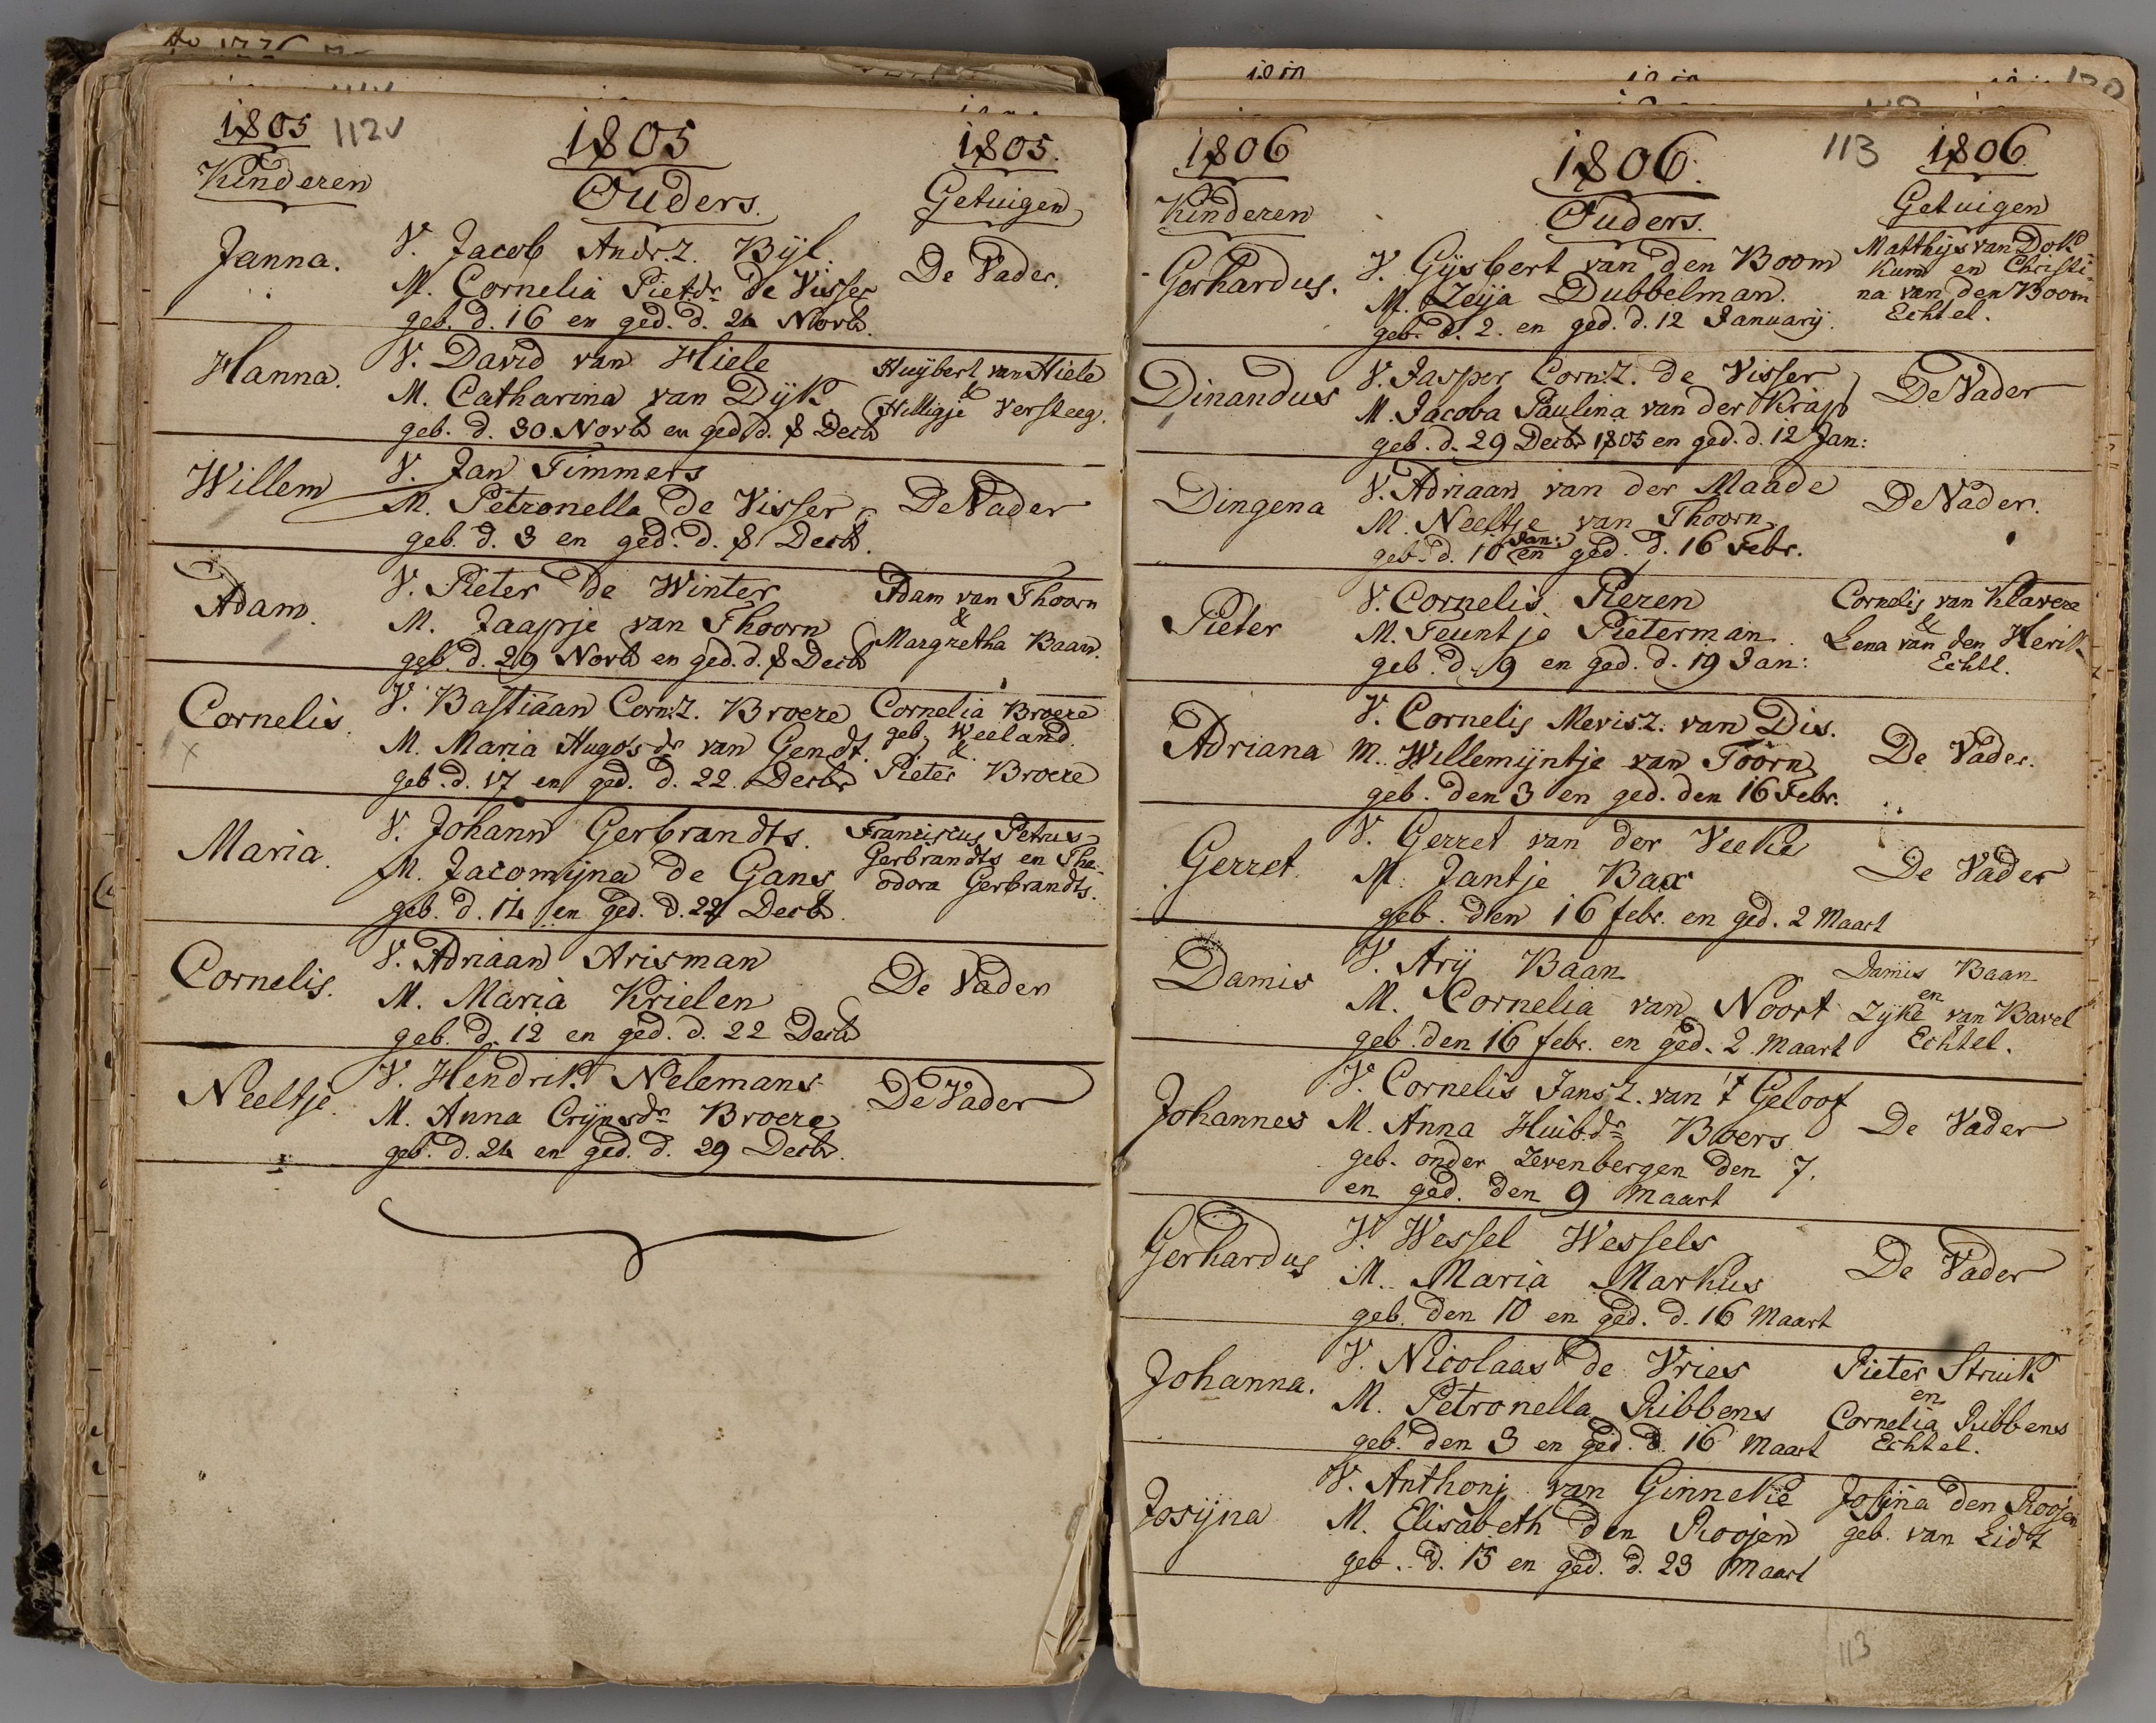 1805 112v 1805 1805.
Kinderen Ouders. Getuigen
Janna. V. Jacob Andr.z. Bijl. De Vader.
M. Cornelia Pietdr. de Visser
geb. d. 16 en ged. d. 24 Novb.
Hanna. V. David van Hiele Huijbert van Hiele
M. Catharina van Dijk & Hilligje Versteeg.
geb. d. 30 Novb en ged. d. 8 Decb
Willem V. Jan Timmers
M. Petronella de Visser De Vader
geb. d. 3 en ged. d. 8 Decb.
Adam. V. Pieter de Winter Adam van Thoorn
M. Jaapje van Thoorn &
geb. d. 29 Novb en ged. d. 8 Decb Margretha Baan.
Cornelis. V. Bastiaan Corn.z. Broere Cornelia Broere
geb. Weeland.
M. Maria Hugosdr van Gendt. &
geb. d. 17 en ged. d. 22. Decbr Pieter Broere
Maria. V. Johann Gerbrandts. Franciscus Petrus
M. Jacomijna de Gans Gerbrandts en The-
geb. d. 14 en ged. d. 22 Decb. odora Gerbrandts.
Cornelis. V. Adriaan Arisman
M. Maria Krielen De Vader
geb. d. 12 en ged. d. 22 Decb
Neeltje. V. Hendrik Nelemans De Vader
M. Anna Crijnsdr Broere
geb. d. 24 en ged. d. 29 Decb.
1806 1806. 113 1806
Kinderen Ouders. Getuigen
Gerhardus. V. Gijsbert van den Boom Matthijs van Dok
M. Zeija Dubbelman. kum en Christi-
na van den Boom
geb. d. 2. en ged. d. 12 Januarij. Echtel.
Dinandus V. Jasper Corn.z. de Visser De Vader
M. Jacoba Paulina van der Krap
geb. d. 29 Decbr 1805 en ged. d. 12 Jan:
Dingena V. Adriaan van der Maade De Vader.
M. Neeltje van Thoorn
Jan:
geb. d. 10 en ged. d. 16 Febr.
Pieter V. Cornelis Pieren Cornelis van Klavere
M. Teuntje Pieterman. &
Lena van den Herik
geb. d. 9 en ged. d. 19 Jan: Echtl.
Adriana V. Cornelis Mevisz. van Dis. De Vader.
M. Willemijntje van Toorn
geb. den 3 en ged. den 16 Febr.
Gerret. V. Gerret van der Veeke De Vader
M. Jantje Bax
geb. den 16 febr. en ged. 2 Maart
Damis V. Arij Baan Damis Baan
en
M. Cornelia van Noort Zijke van Bavel
geb. den 16 febr. en ged. 2 Maart Echtel.
Johannes V. Cornelis Jansz. van 't Geloof
M. Anna Huib.dr Boers De Vader
geb. onder Zevenbergen den 7.
en ged. den 9 Maart
Gerhardus V. Wessel Wessels De Vader
M. Maria Markus
geb. den 10 en ged. d. 16 Maart
Johanna. V. Nicolaas de Vries Pieter Struik
en
M. Petronella Ribbens Cornelia Ribbens
geb. den 3 en ged. d. 16 Maart Echtel.
Josijna V. Anthonj van Ginneke Josijna den Roojen
M. Elisabeth den Roojen geb. van Lidt
geb. d. 15 en ged. d. 23 Maart
113